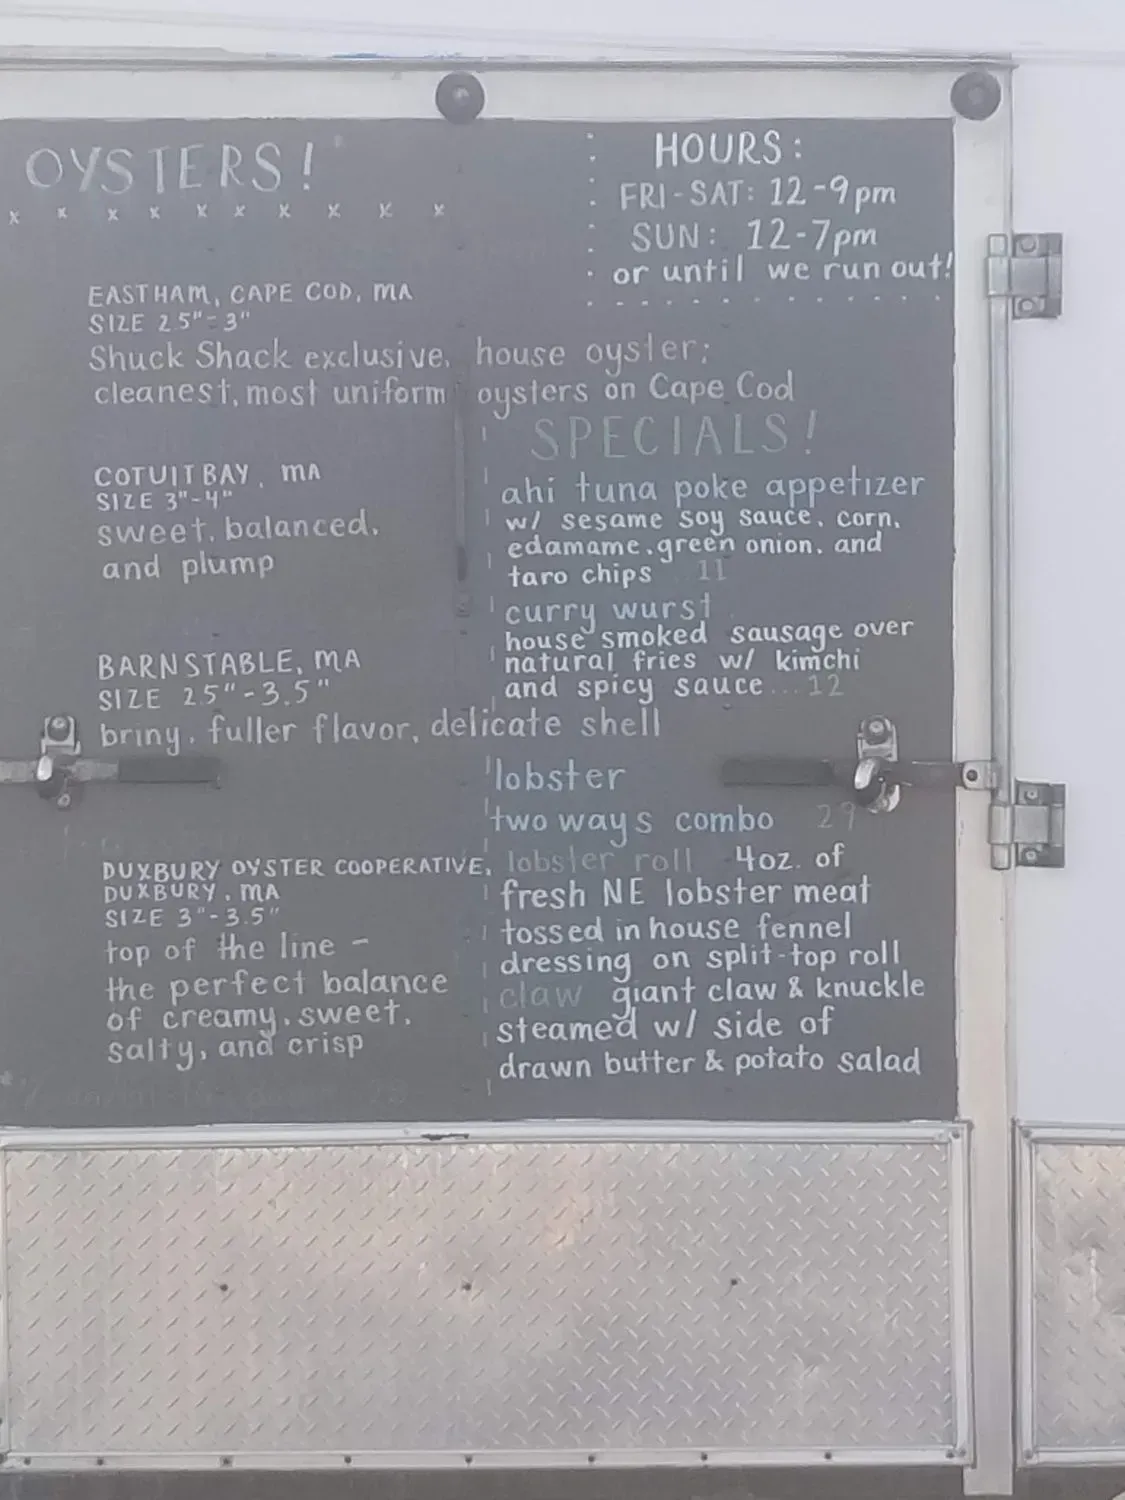 OYSTERS!
x x x x x x x x x x
EASTHAM, CAPE COD, MA
SIZE 2.5"-3"
Shuck Shack exclusive, house oyster;
cleanest, most uniform oysters on Cape Cod
COTUIT BAY, MA
SIZE 3"-4"
sweet, balanced,
and plump
BARNSTABLE, MA
SIZE 2.5"-3.5"
briny, fuller flavor, delicate shell
DUXBURY OYSTER COOPERATIVE,
DUXBURY, MA
SIZE 3"-3.5"
top of the line -
the perfect balance
of creamy, sweet,
salty, and crisp
HOURS:
FRI-SAT: 12-9pm
SUN: 12-7pm
or until we run out!
SPECIALS!
ahi tuna poke appetizer
w/ sesame soy sauce, corn,
edamame, green onion, and
taro chips 11
curry wurst
house smoked sausage over
natural fries w/ kimchi
and spicy sauce...12
lobster
two ways combo 29
lobster roll 4oz. of
fresh NE lobster meat
tossed in house fennel
dressing on split-top roll
claw giant claw & knuckle
steamed w/ side of
drawn butter & potato salad